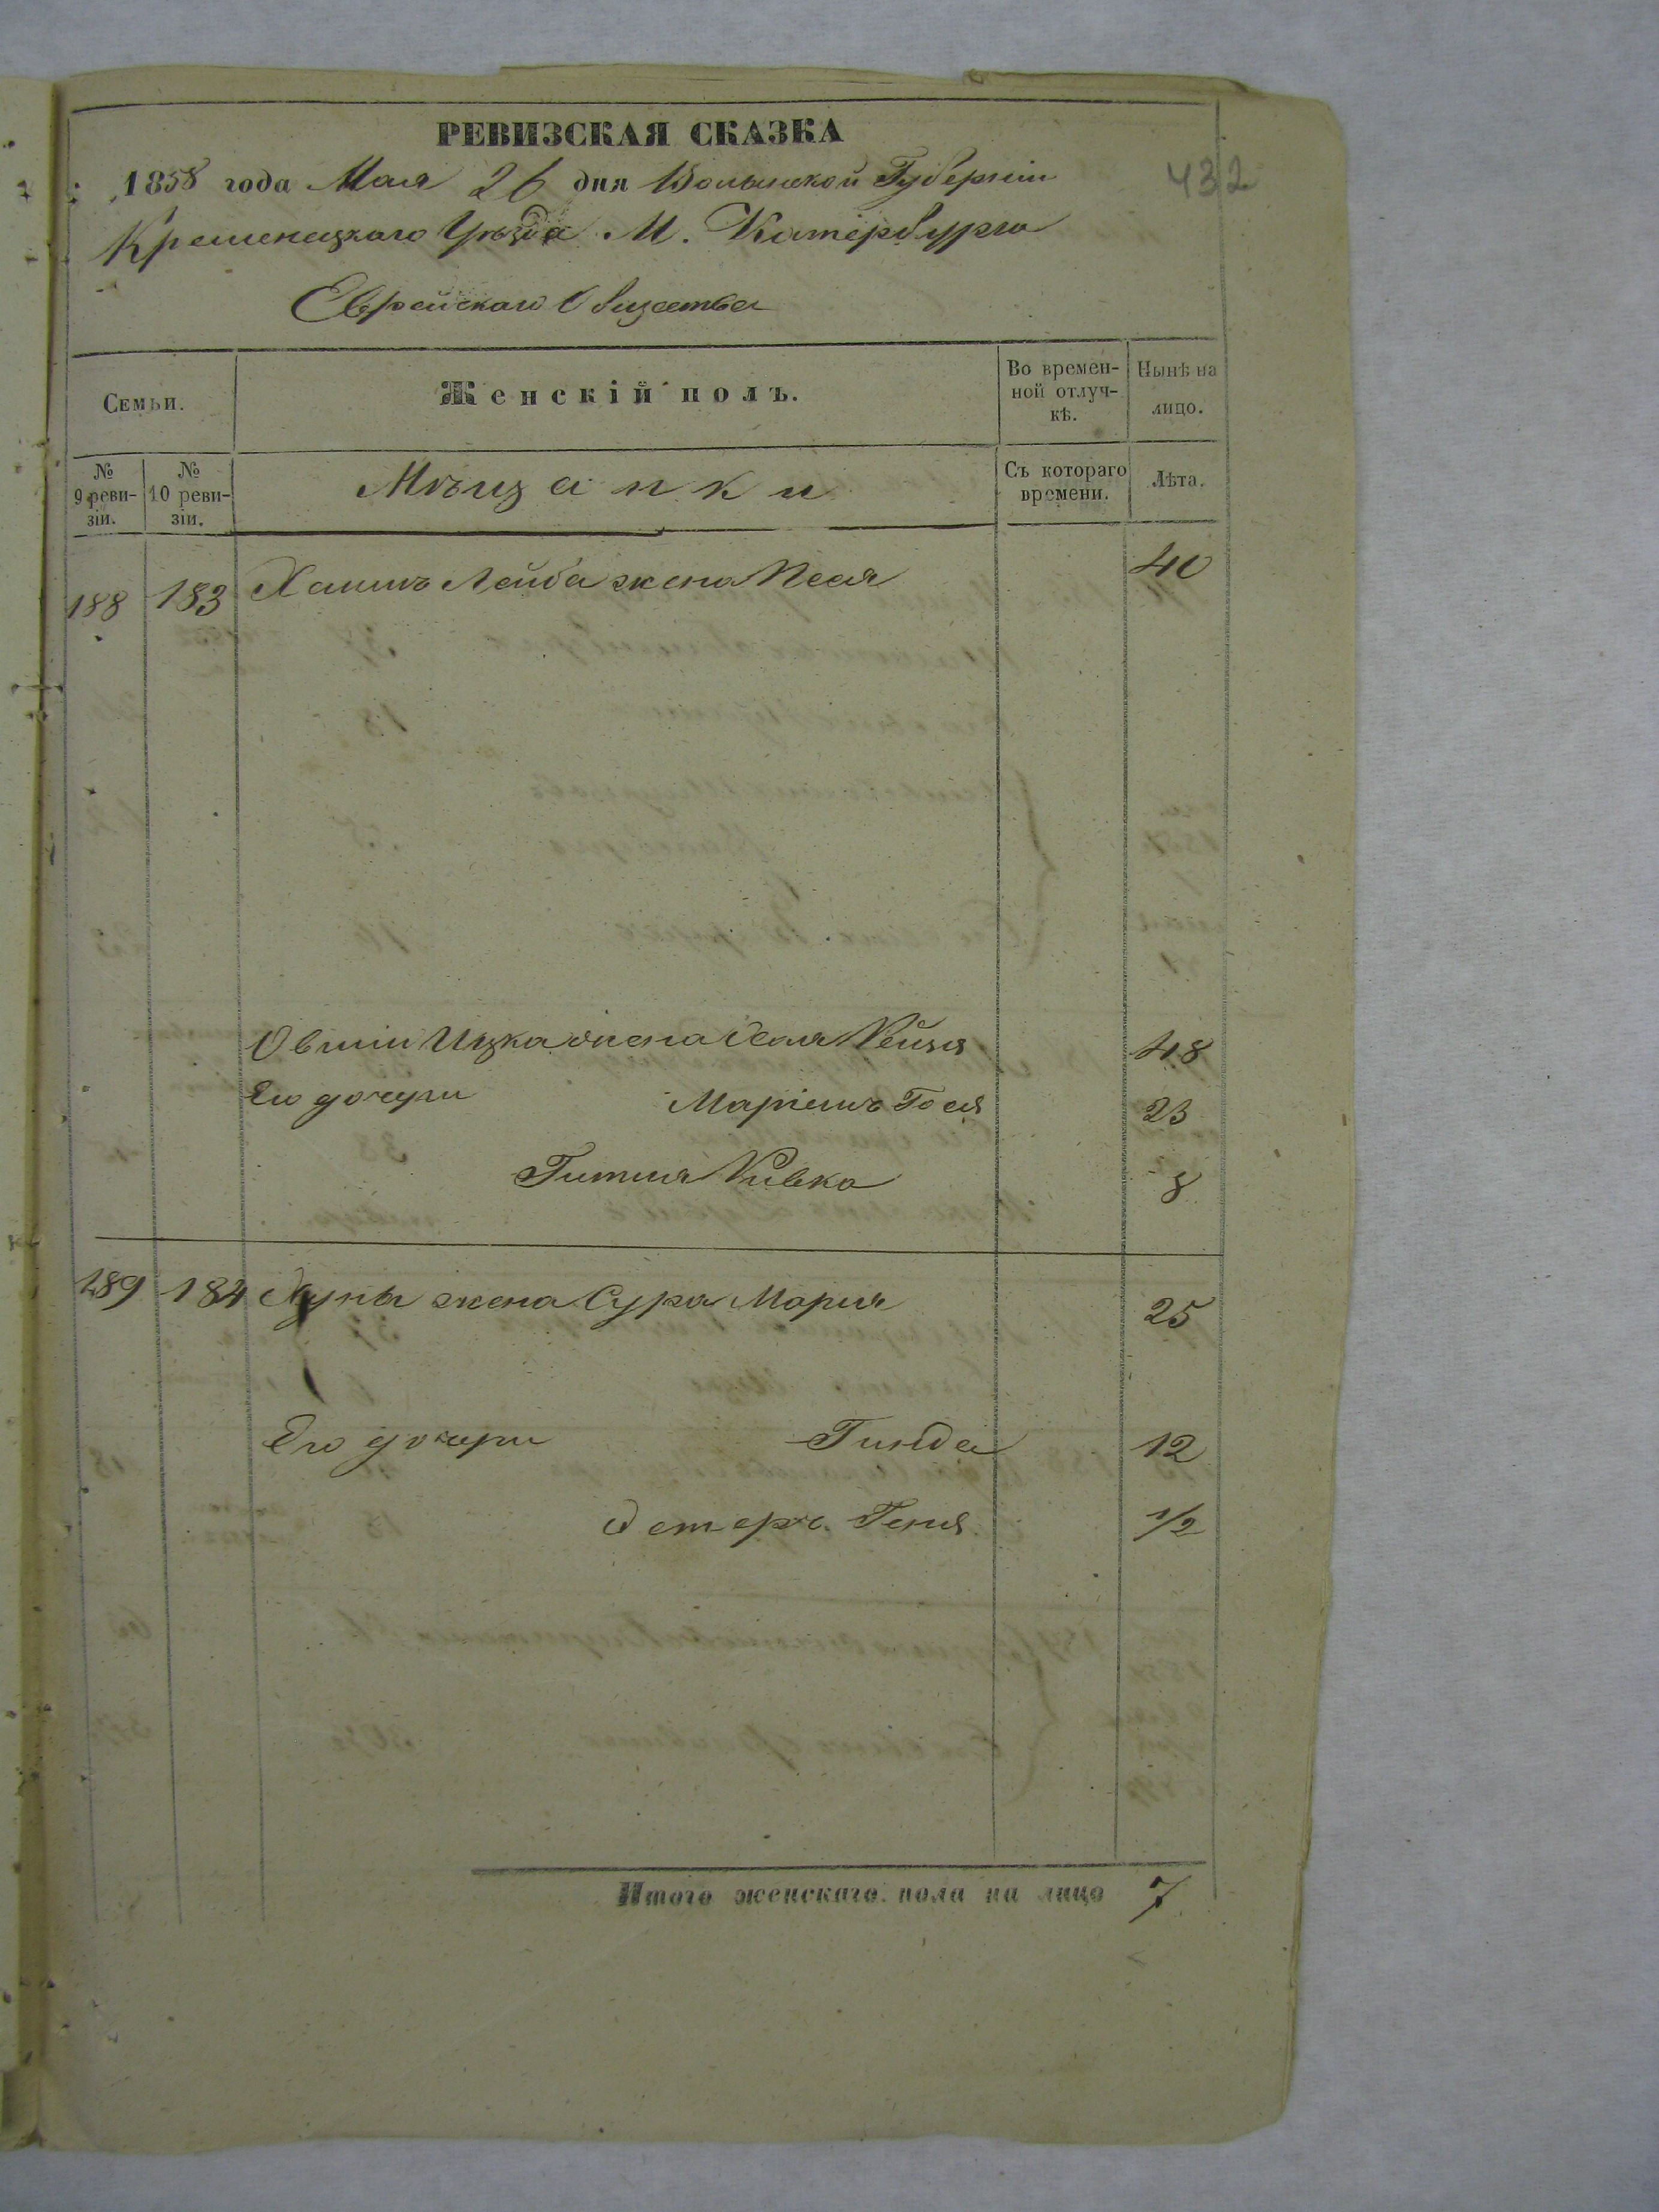 РЕВИЗСКАЯ СКАЗКА
1858 года Мая 26 дня Волынской Губернiи
432
Кременецкаго Уѣзда М. Катербурга
Еврейскаго Общества
Семьи.
Женскiй полъ.
Во времен-
ной отлуч-
кѣ.
Нынѣ на
лицо.
№
9 реви-
зiи.
№
10 реви-
зiи.
Мѣщанки
Съ котораго
времени.
Лѣта.
188 183 Хаимъ Лейба жена Песя 40
Овшiи Ицка жена Рейзя 48
Его дочери Марiемъ Гося 23
Гитля Ривка 8
189 184 жена Сура Мария 25
Его дочери Гинда 12
Эстеръ Геня 1/2
Итого женскаго пола на лицо 7